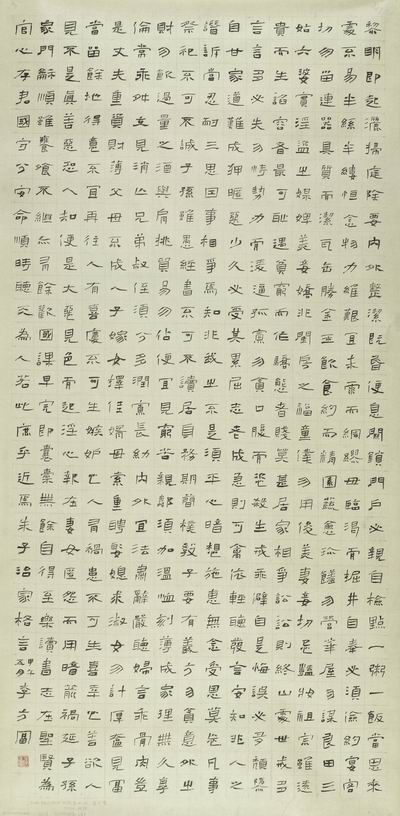 黎明即起灑掃庭除要內外整潔既昏便息關鎖門戶必親自檢點一粥一飯當思來
處不易半絲半縷恒念物力維艱宜未雨而綢繆毋臨渴而掘井自奉必須儉約宴客
切勿留連器具質而潔瓦缶勝金玉飲食約而精園蔬愈珍饈勿營華屋勿謀良田三
姑六婆實淫盜之媒婢美妾嬌非閨房之福童僕勿用俊美妻妾切忌豔妝祖宗雖遠
貴而生諂容者最可恥遇貧窮而作驕態者賤莫甚居家戒爭訟訟則終凶處世戒多
言言多必失勿恃勢力而凌逼孤寡勿貪口腹而恣殺生禽乖僻自是悔誤必多頹隳
自甘家道難成狎暱惡少久必受其累屈志老成急則可相依輕聽發言安知非人之
譖訴當忍耐三思因事相爭焉知非我之不是須平心暗想施惠無念受恩莫忘凡事
祭祀不可不誠子孫雖愚經書不可不讀居身務期質樸教子要有義方勿貪意外之
財勿飲過量之酒與肩挑貿易勿佔便宜見窮苦親鄰須加溫恤刻薄成家理無久享
倫常乖舛立見消亡兄弟叔侄須分多潤寡長幼內外宜法肅辭嚴聽婦言乖骨肉豈
是丈夫重資財薄父母不成人子嫁女擇佳婿毋索重聘娶媳求淑女勿計厚奩見富
當留餘地不宜再往人有喜慶不可生嫉妒心人有禍患不可生喜幸心善欲人
見不是真善惡恐人知便是大惡見色而起淫心報在妻女匿怨而用暗箭禍延子孫
家門和順雖饔飧不繼亦有餘歡國課早完即囊橐無餘自得至樂讀書志在聖賢為
官心存君國守分安命順時聽天為人若此庶乎近焉朱子治家格言
甲午五月